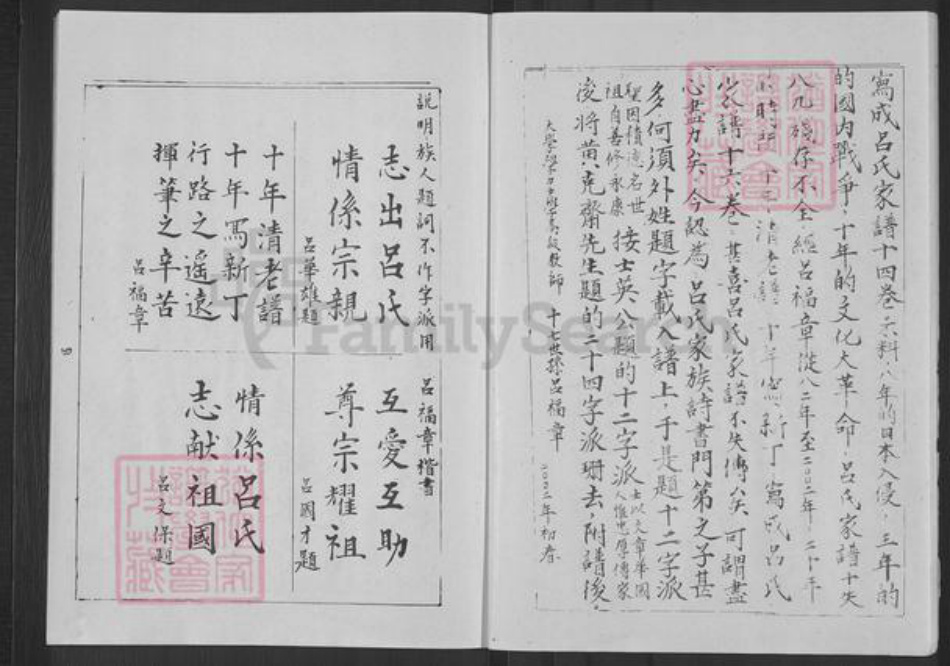 寫成呂氏家譜十四卷不料八年的日本入侵，三年的
的國內戰爭，十年的文化大革命，呂氏家譜十失
八九殘存不全，經呂福章從八二年至二〇〇二年，二十年
時間十年清老譜，十年寫新丁，寫成呂氏
家譜十六卷，甚喜呂氏家譜不失傳矣，可謂盡
心盡力矣，今認為呂氏家族詩書門第之子甚
多何須外姓題字載入譜上，于是題十二字派
聖因積德名世
祖自善修永康
接士英公題的十二字派
士以文章華國
人惟忠厚傳家
後將黄克齋先生題的二十四字派珊去，附譜後，
教師 十七世孫呂福章 二〇〇二年初春
説明族人題詞不作字派用 呂福章楷書
志出呂氏
情係宗親
呂華雄題
十年清老譜
十年寫新丁
行路之遙遠
揮筆之辛苦
呂福章
互愛互助
尊宗耀祖
呂國才題
情係呂氏
志献祖國
呂文保題
FamilySearch